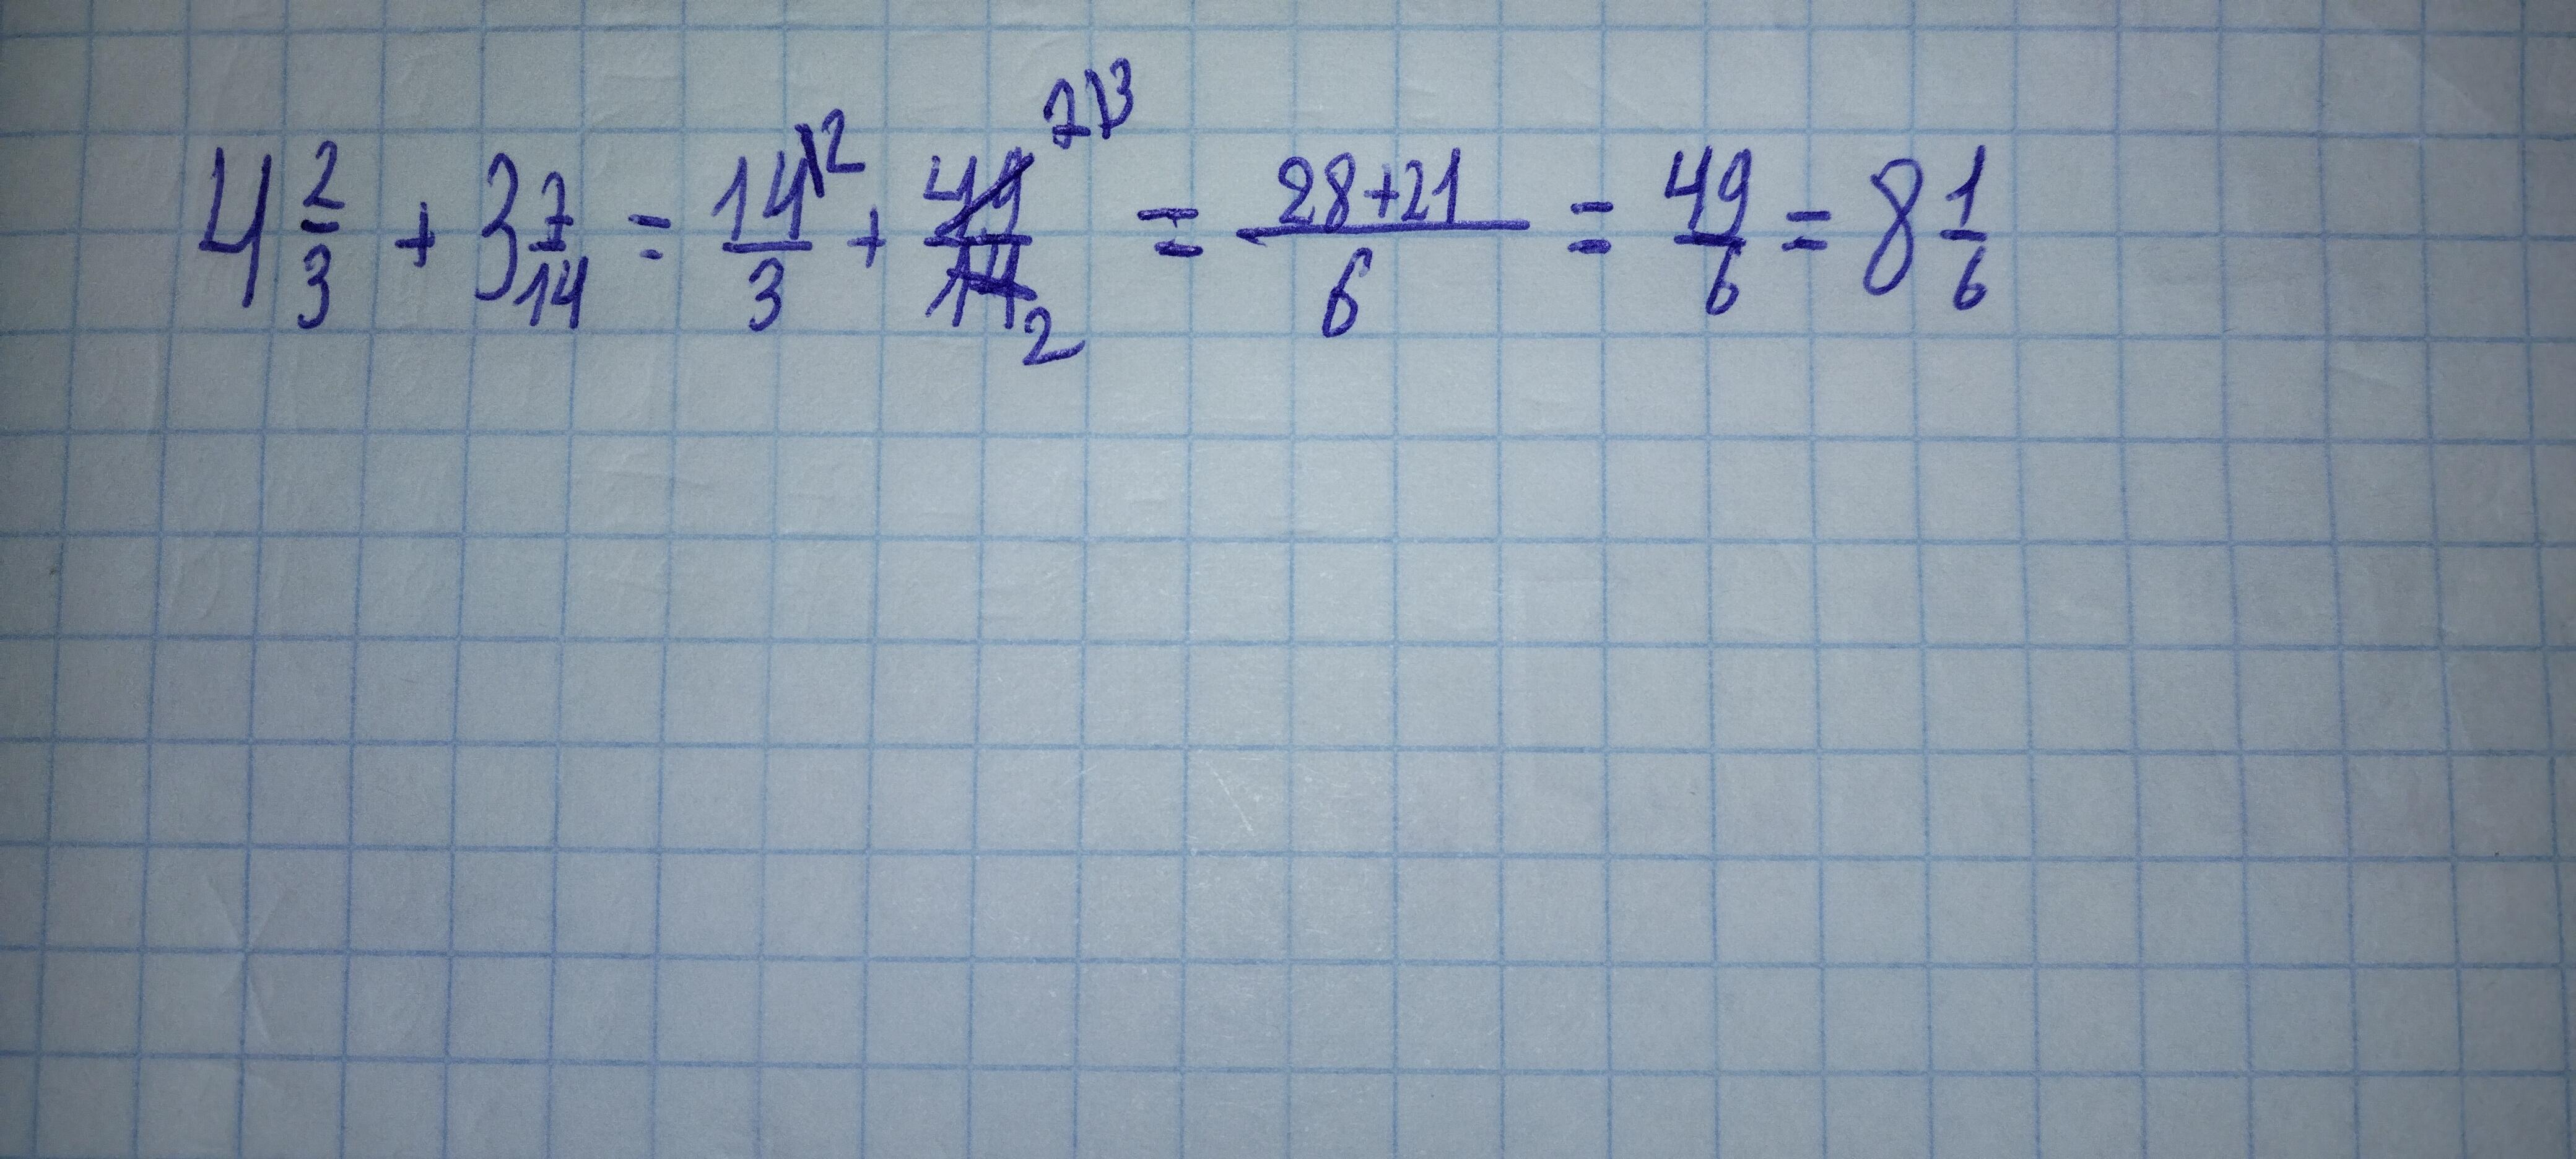 4 2/3 + 3 7/14 = 14\2/3 + 49/14 7\3 2 = 28+21/6 = 49/6 = 8 1/6